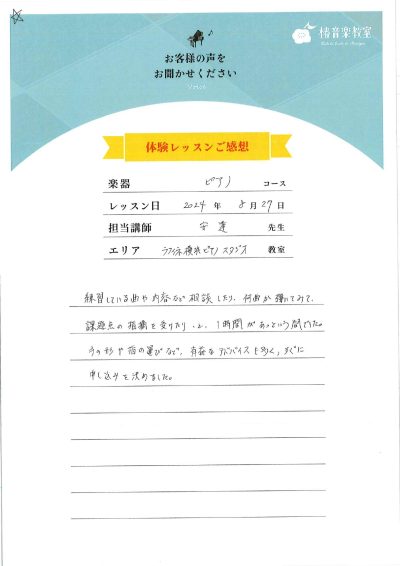 お客様の声を
お聞かせください
Voice
椿音楽教室
体験レッスンご感想
楽器 ピアノ コース
レッスン日 2024 年 8 月 27 日
担当講師 安達 先生
エリア 横浜ピアノスタジオ 教室
練習している曲や内容など相談したり、何曲か弾いてみて、
課題点の指摘を受けたり、と、1時間があっという間でした。
手の形や指の運びなど、有益なアドバイスも多く、すぐに
申し込みを決めました。